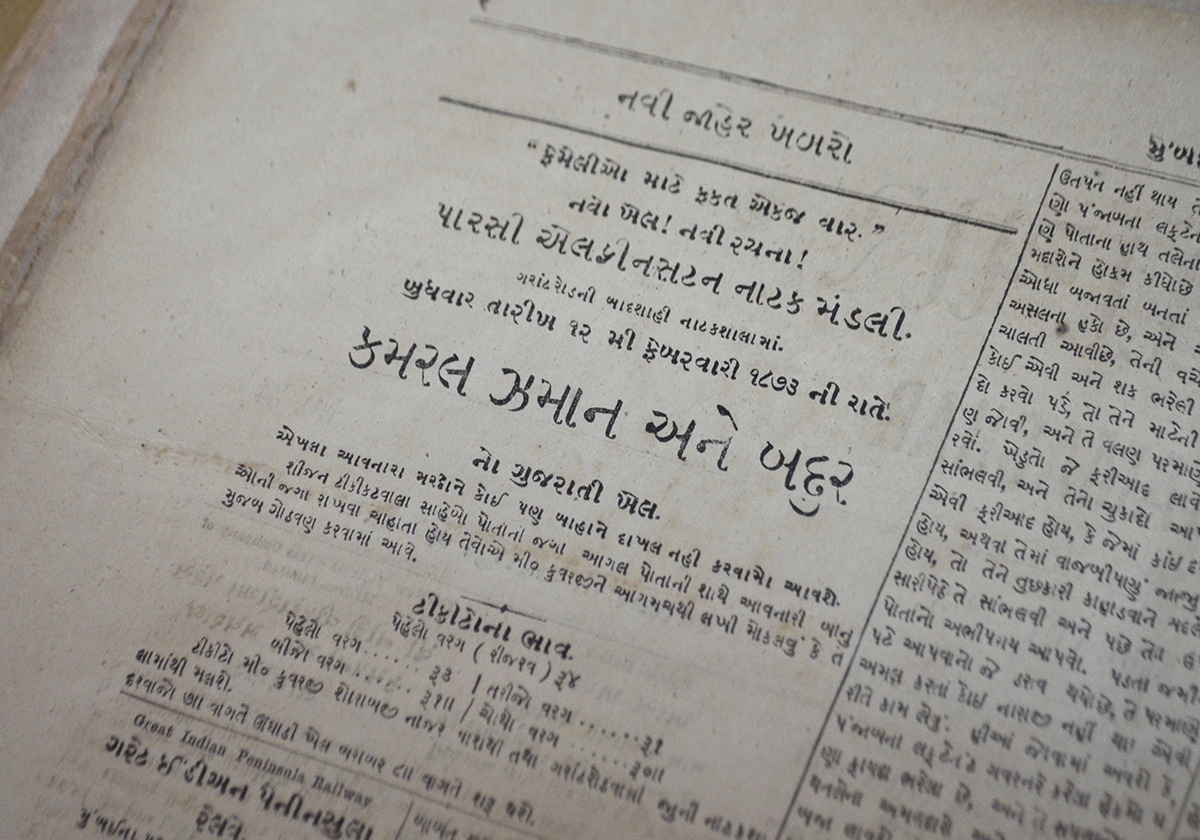 નવી જાહેર ખબરો
“ફેમેલીઓ માટે ફકત એકજ વાર.”
નવો ખેલ! નવી રચના!
પારસી એલફીનસટન નાટક મંડલી.
ગરાંટરોડની બાદશાહી નાટકશાલામાં.
બુધવાર તારીખ ૧૨ મી ફેબરવારી ૧૮૭૩ ની રાતે.
કમરલ ઝમાન અને બદુર
નો ગુજરાતી ખેલ.
એખલા આવનારા મરદોને કોઈ પણ બાહાને દાખલ નહી કરવામાં આવશે.
શીજન ટીકીટવાલા સાહેબો પોતાની જગા આગલ પોતાની શાથે આવનારી બાનુ
ઓની જગા રાખવા ચાહાતા હોય તેવોએ મી૦ કુવરજીને આગમચથી લખી મોકલવું કે તે
મુજબ ગોઠવણ કરવામાં આવે.
ટીકીટોના ભાવ.
પેહેલો વરગ (રીજરવ) રૂ૪
પેહેલો વરગ...... રૂ૩ | તરીજો વરગ ...... રૂ૧
બીજો વરગ ....... રૂ૧॥ | ચોથો વરગ ...... રૂ૦॥
ટીકીટો મી૦ કુવરજી શોરાબજી નાજર પાશથી તથા ગરાંટરોડવાલી જુની નાટકશા
લામાંથી મલશે.
દરવાજો ૭॥ વાગતે ઉઘાડી ખેલ બરાબર ૮॥ વાગતે શરૂ થશે.
Great Indian Peninsula Railway
ગરેટ ઈંડીઅન પેનીનસુલા
રેલવે
ઉતપંન નહીં થાય તે
ણો પંજાબના લફટેન
ણે પોતાના હાથ તલેના
મદારોને હોકમ કીધોછે
ઓધા બજાવતાં બનતાં
અસલના હકો છે, અને
ચાલતી આવીછે, તેની વચે
કોઈ એવી અને શક ભરેલી
દો કરવો પડે, તો તેને માટેની
ણ જોવી, અને તે વલણ પરમાણે
રવો. ખેડુતો જે ફરીઆદ લાવે
સાંભલવી, અને તેનો ચુકાદો આપ
એવી ફરીઆદ હોય, કે જેમાં કાંઈ
હોય, અથવા તેમાં વાજબીપણું
હોય, તો તેને તુછકારી કાહાડવાને
સારીપેઠે તે સાંભલવી અને પછે તે
પોતાનો અભીપરાય આપવો. પડતા
પટે આપવાનો જે ઠરાવ થયોછે, તે પરમાણે
અમણ કરતાં કોઈ નાસજી નહીં થાય એવી
રીતે કામ લેવું. હીઆં જોવામાં આવશે કે,
પંજાબના લફટેનંટ ગવરનરે